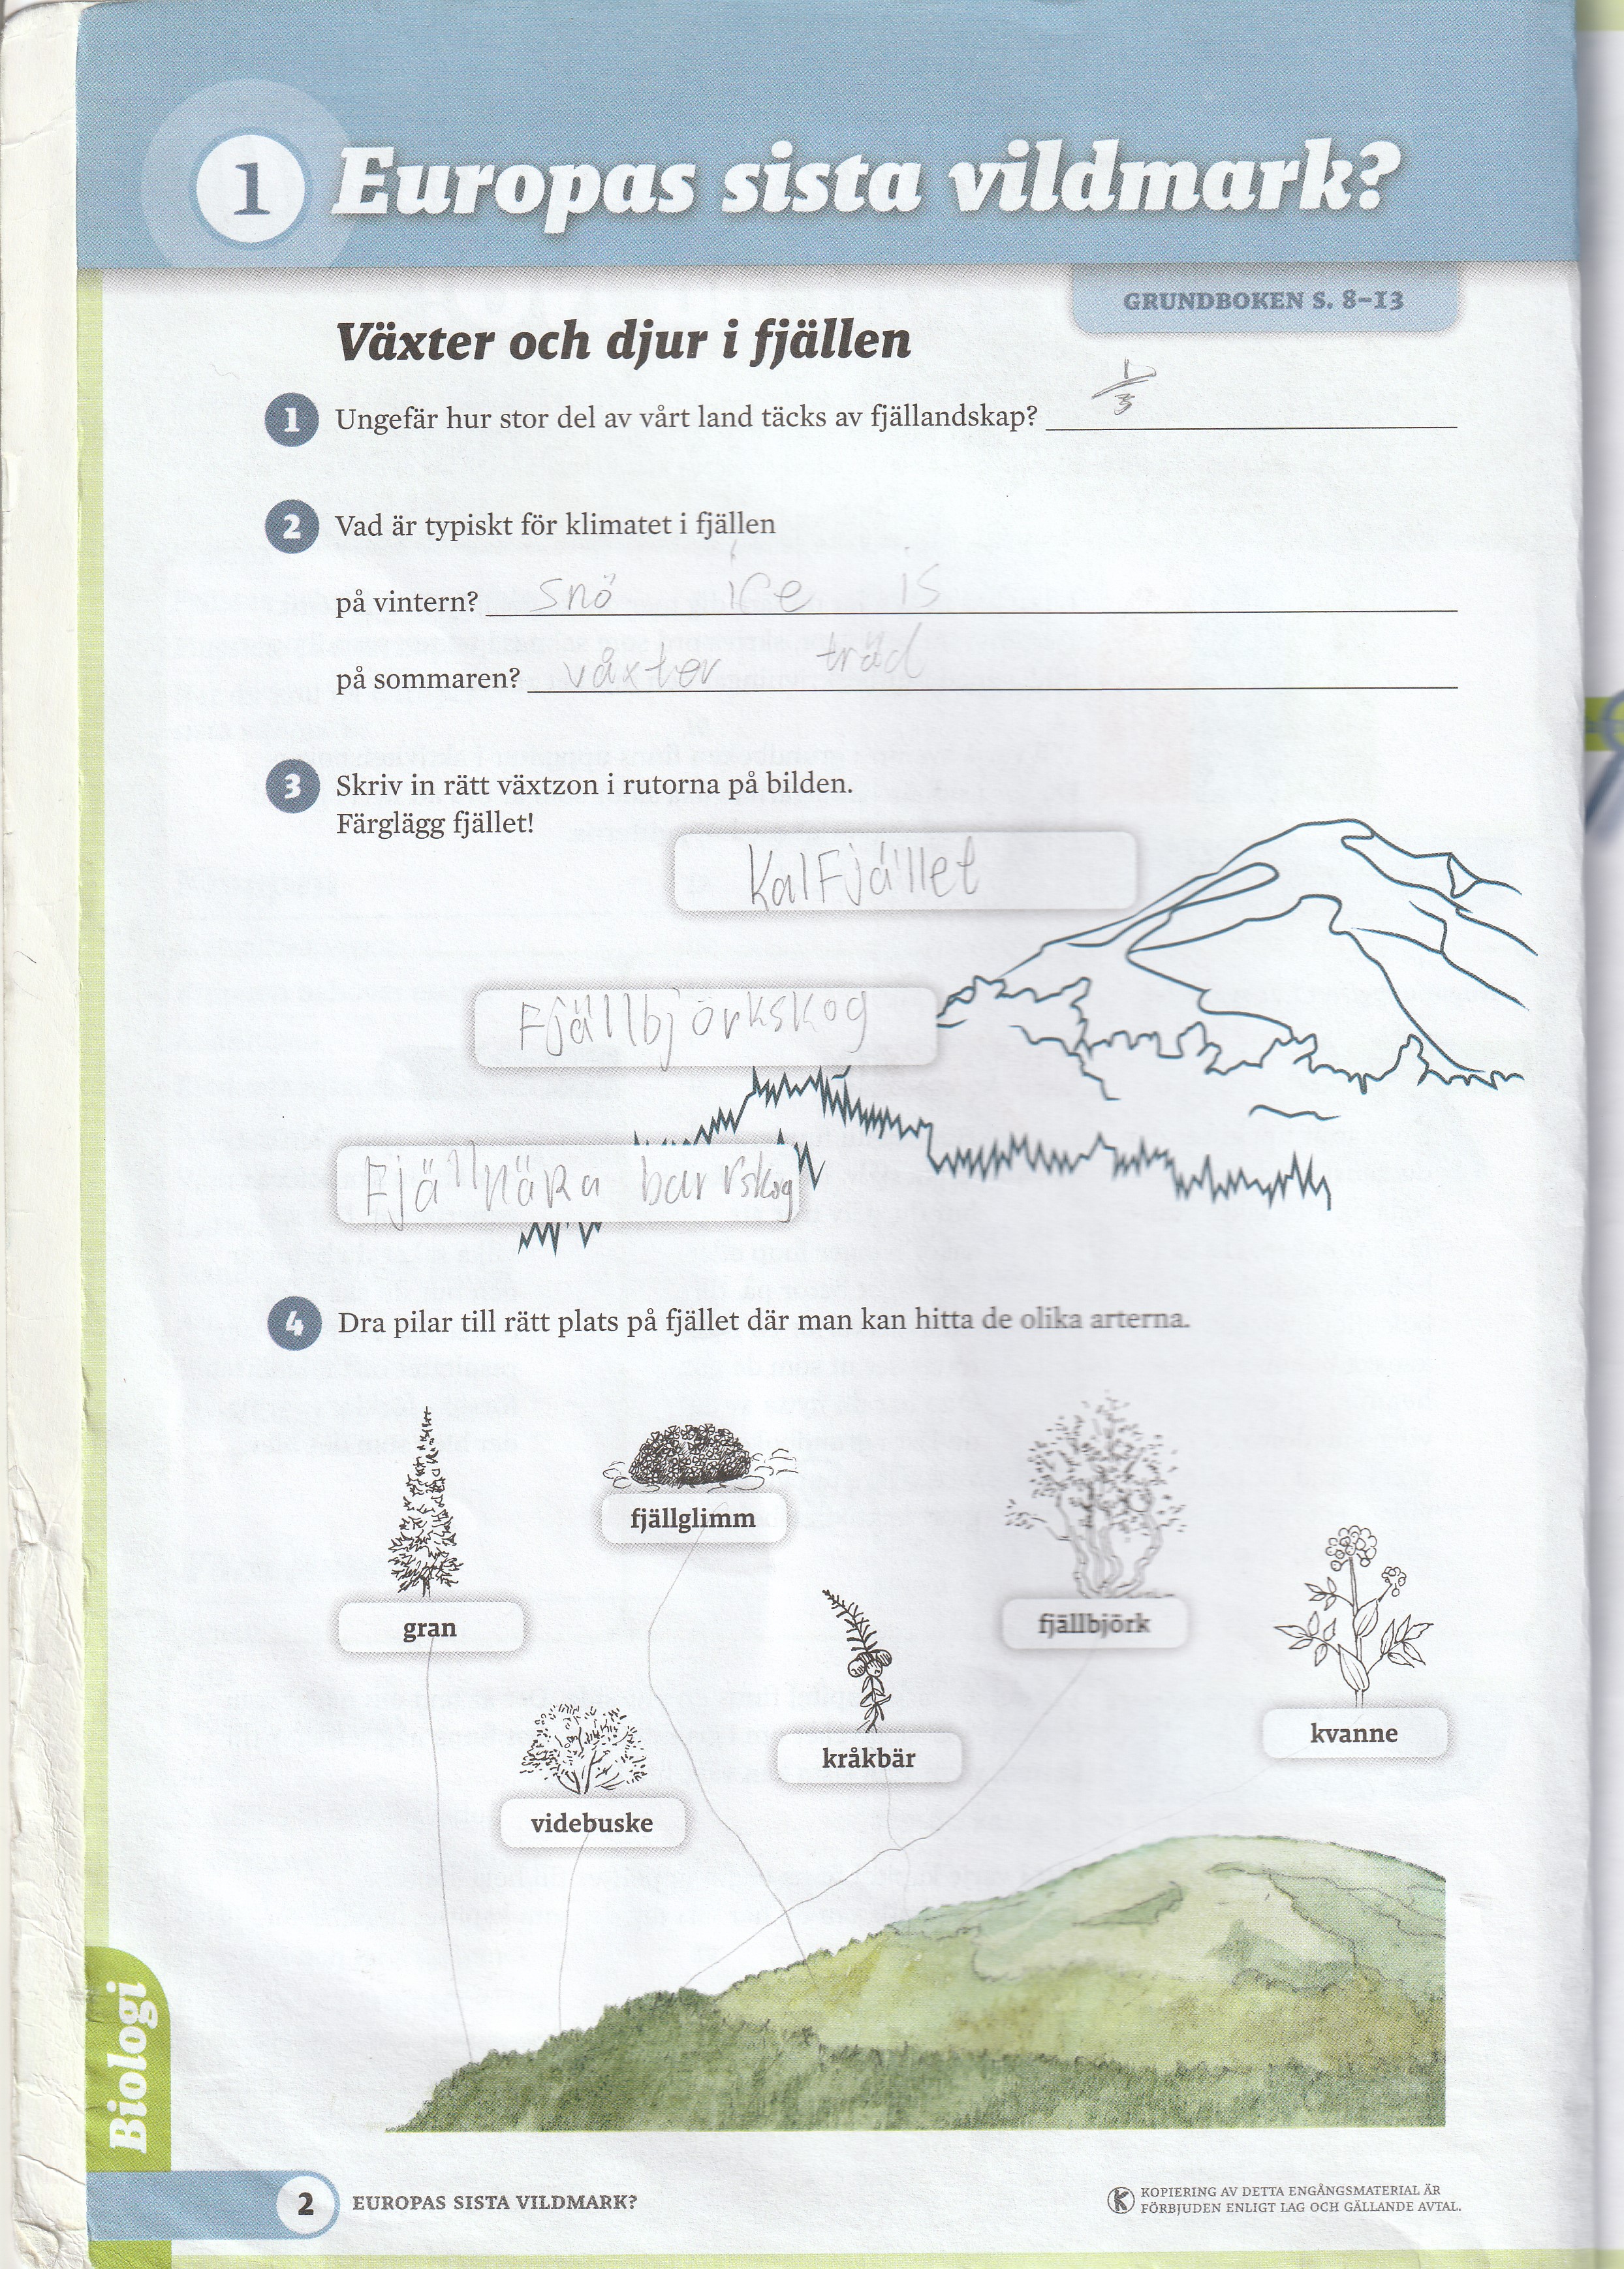 1 Europas sista vildmark?
GRUNDBOKEN S. 8–13
Växter och djur i fjällen
1/3
1 Ungefär hur stor del av vårt land täcks av fjällandskap?
2 Vad är typiskt för klimatet i fjällen
på vintern? snö ice is
på sommaren? växter träd
3 Skriv in rätt växtzon i rutorna på bilden.
Färglägg fjället!
KalFjället
Fjällbjörkskog
Fjällnära barrskog
4 Dra pilar till rätt plats på fjället där man kan hitta de olika arterna.
fjällglimm
gran
fjällbjörk
kvanne
kråkbär
videbuske
Biologi
2 EUROPAS SISTA VILDMARK?
K KOPIERING AV DETTA ENGÅNGSMATERIAL ÄR
FÖRBJUDEN ENLIGT LAG OCH GÄLLANDE AVTAL.